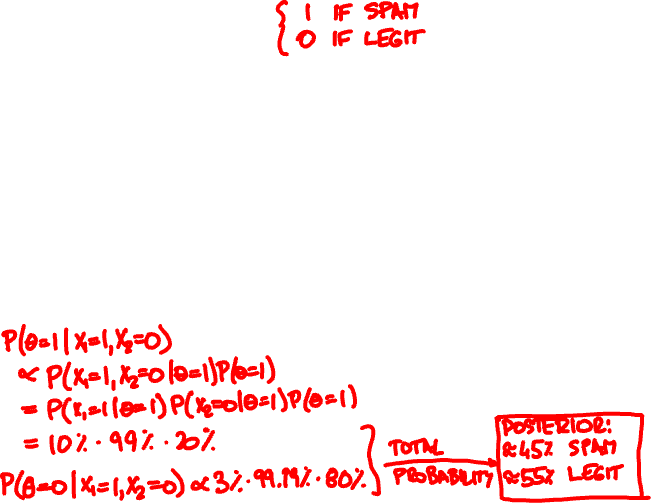 { 1 IF SPAM
0 IF LEGIT
P(θ=1 | X₁=1, X₂=0)
∝ P(X₁=1, X₂=0 | θ=1) P(θ=1)
= P(X₁=1 | θ=1) P(X₂=0 | θ=1) P(θ=1)
= 10% · 99% · 20%
P(θ=0 | X₁=1, X₂=0) ∝ 3% · 99.99% · 80%
TOTAL
PROBABILITY
POSTERIOR:
≈45% SPAM
≈55% LEGIT